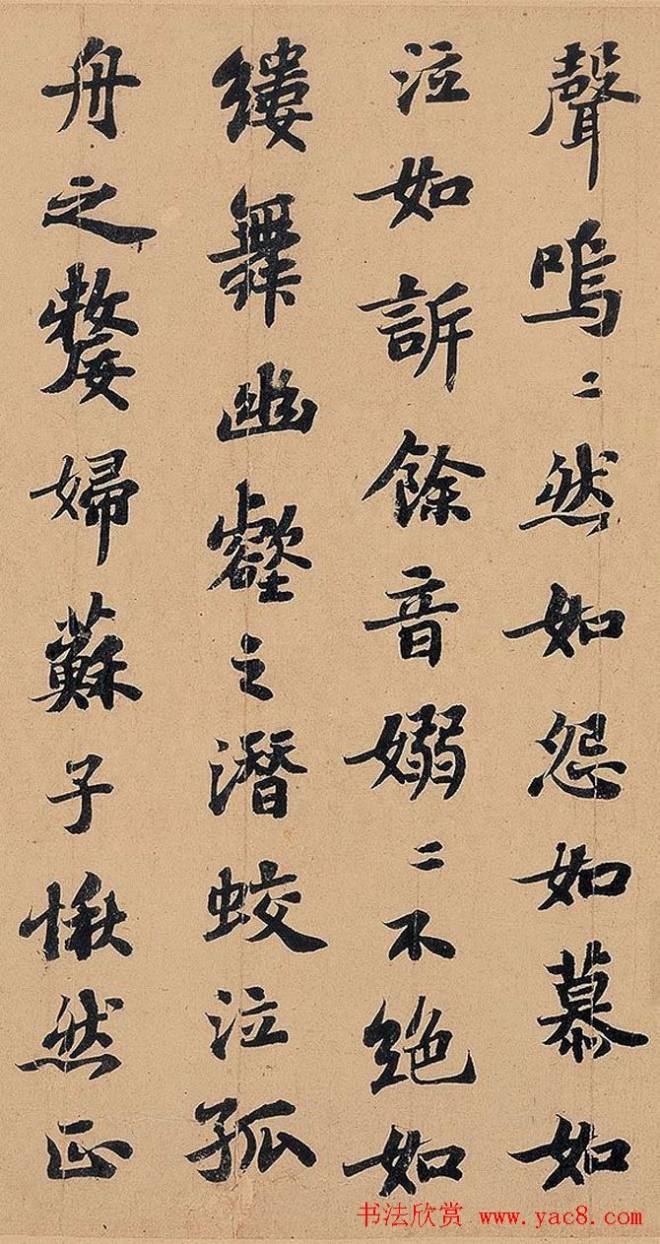 聲嗚〻然如怨如慕如
泣如訴餘音嫋〻不絕如
縷舞幽壑之潛蛟泣孤
舟之嫠婦蘇子愀然正
书法欣赏 www.yac8.com